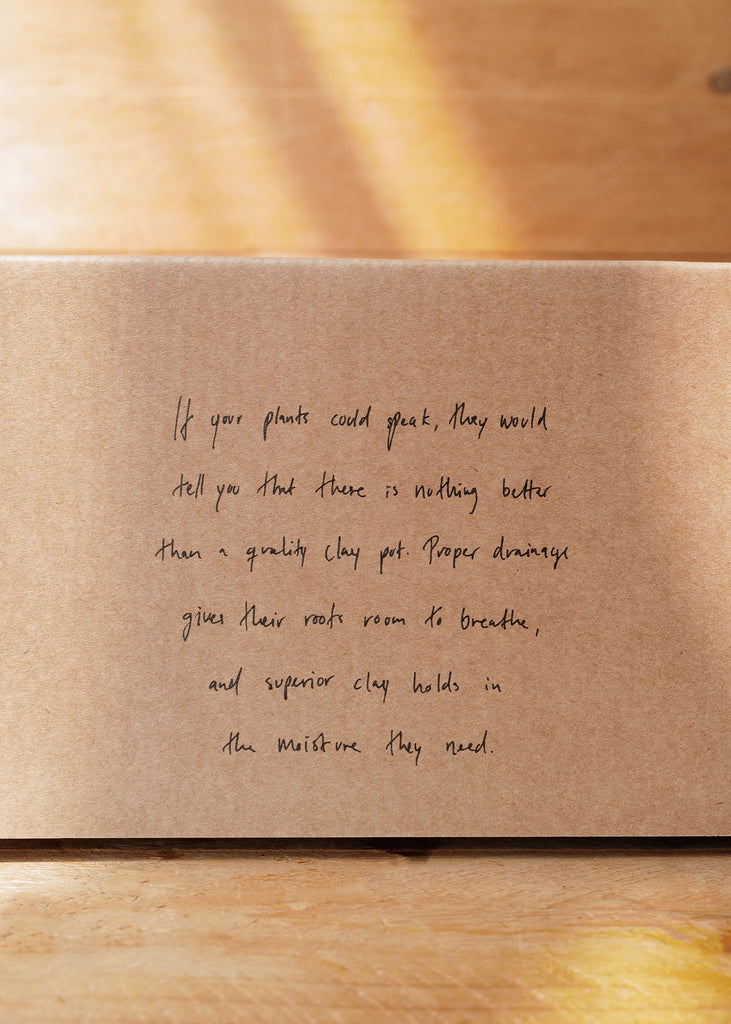 If your plants could speak, they would
tell you that there is nothing better
than a quality clay pot. Proper drainage
gives their roots room to breathe,
and superior clay holds in
the moisture they need.